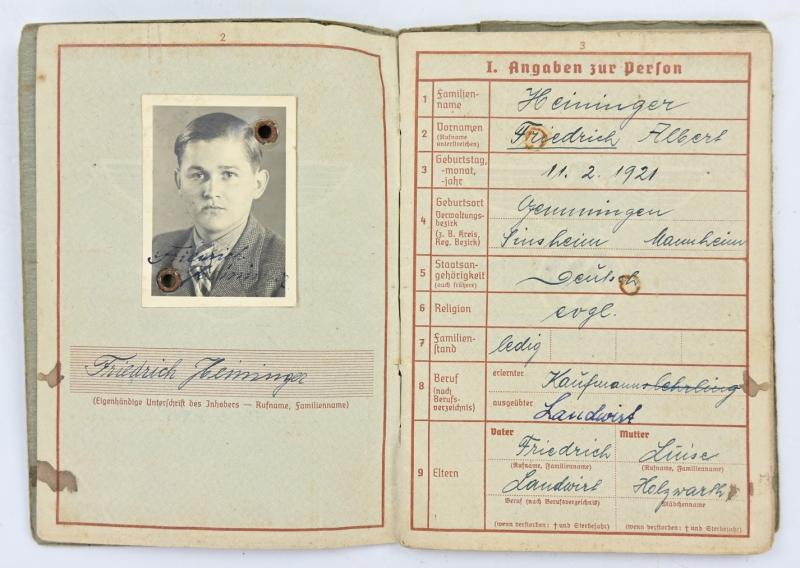 2
Friedrich
Friedrich Heininger
(Eigenhändige Unterschrift des Inhabers — Rufname, Familienname)
3
I. Angaben zur Person
1 Familien-
name
Heininger
2 Vornamen
(Rufname
unterstreichen)
Friedrich Albert
3 Geburtstag,
-monat,
-jahr
11. 2. 1921
4 Geburtsort
Verwaltungs-
bezirk
(z. B. Kreis,
Reg. Bezirk)
Gemmingen
Sinsheim Mannheim
5 Staatsan-
gehörigkeit
(auch frühere)
Deutsch
6 Religion
evgl.
7 Familien-
stand
ledig
8 Beruf
(nach
Berufs-
verzeichnis)
erlernter
Kaufmannslehrling
ausgeübter
Landwirt
9 Eltern
Vater Mutter
Friedrich Luise
(Rufname, Familienname) (Rufname, Familienname)
Landwirt Holzwarth
Beruf (nach Berufsverzeichnis) Mädchenname
(wenn verstorben: † und Sterbejahr) (wenn verstorben: † und Sterbejahr)